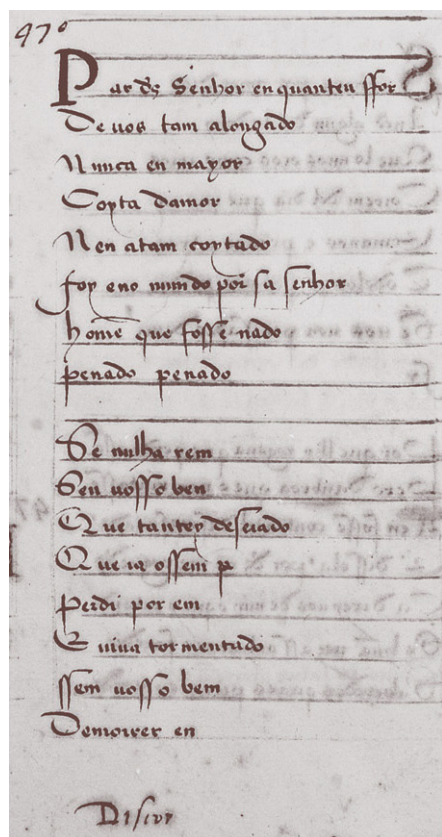 470
Par d's Senhor en quanteu ffor
De uos tam alongado
Nunca en mayor
Coyta damor
Nen atam coytado
foy eno mundo por sa senhor
home que fosse nado
penado penado
Se nulha rem
Seu uosso ben
Que tantey deseiado
Que ia ossem p
Perdi por em
E uiua tormentado
ssem uosso bem
Demoirer en
Discor